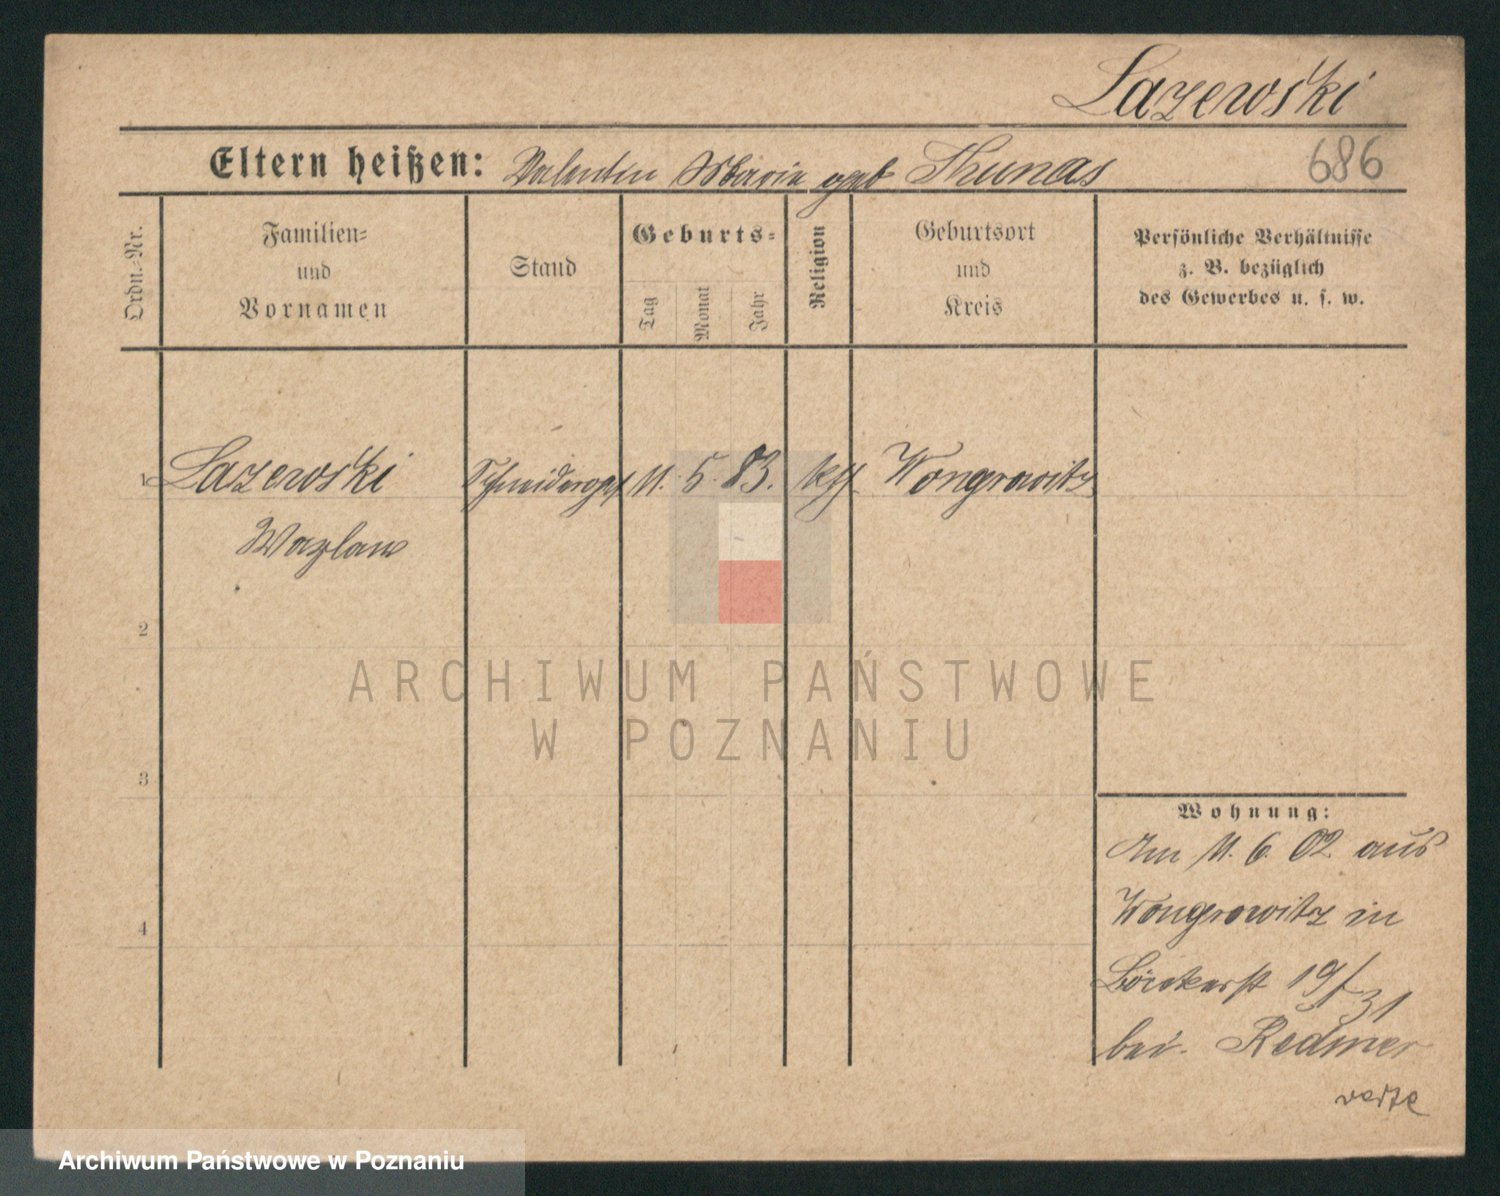 Lazewski
Eltern heißen: Valentin Maria geb Thunas
686
Ordn.-Nr.
Familien-
und
Vornamen
Stand
Geburts-
Tag
Monat
Jahr
Religion
Geburtsort
und
Kreis
Persönliche Verhältnisse
z. B. bezüglich
des Gewerbes u. s. w.
1 Lazewski Schneidergs 11. 5. 83. kth Wongrowitz
Wazlaw
2
3
4
Wohnung:
Am 11. 6. 02 aus
Wongrowitz in
Bäckerst 19/31
bei Redmer
verte
ARCHIWUM PAŃSTWOWE
W POZNANIU
Archiwum Państwowe w Poznaniu